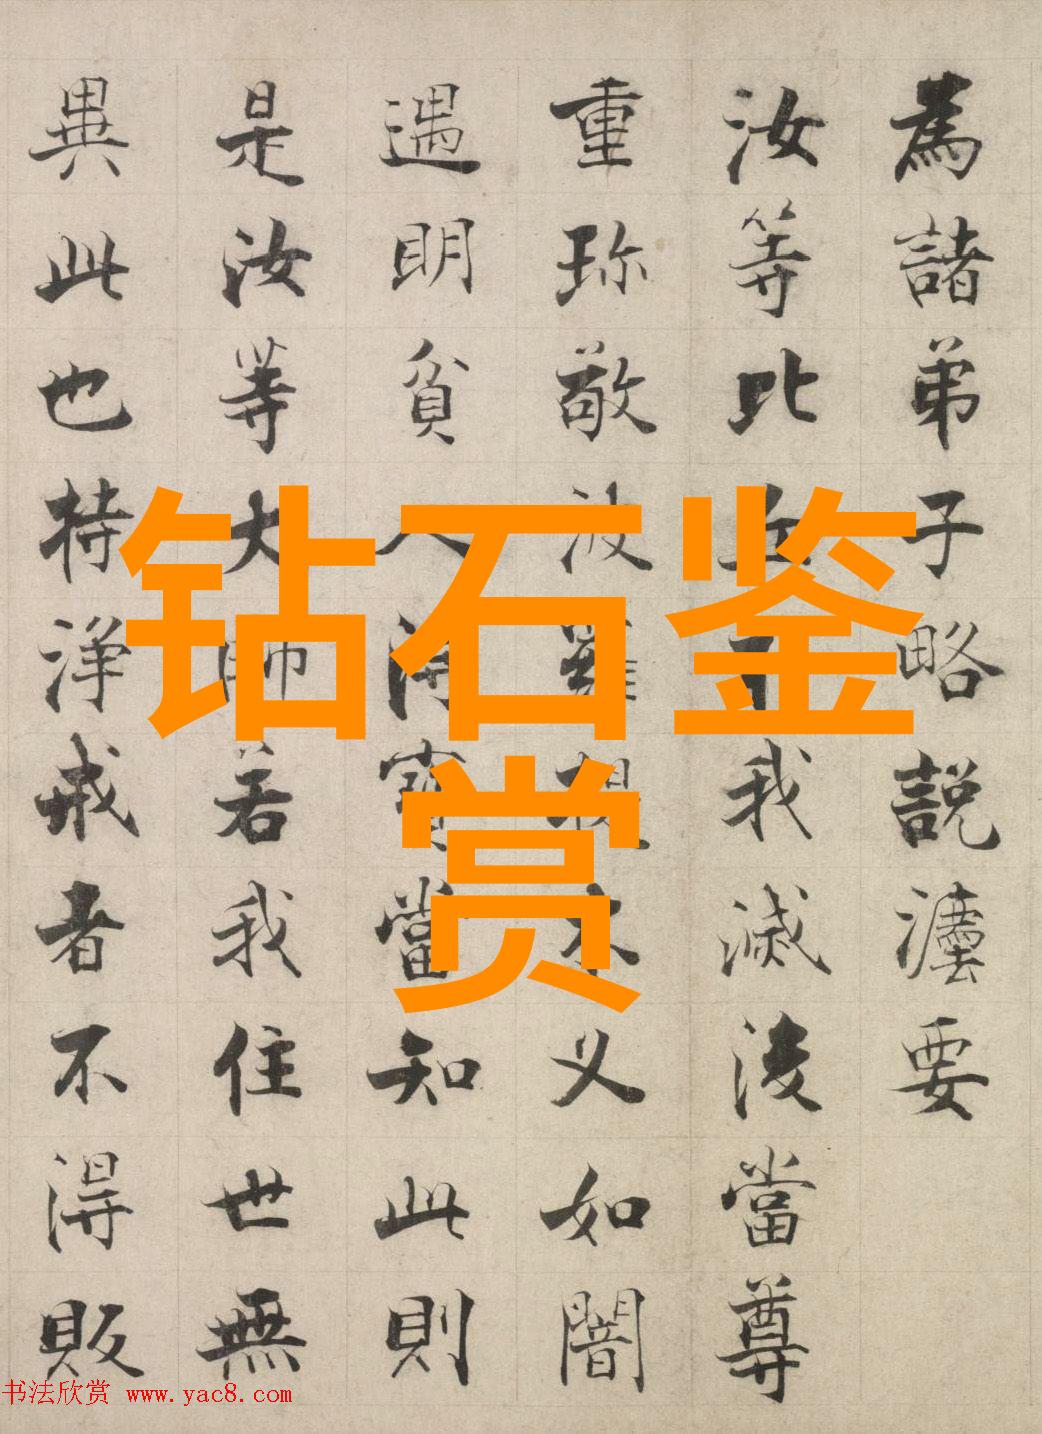 為諸弟子略說灋要
汝等比丘于我滅後當尊
重珎敬波羅提木义如闇
遇明貧人得寶當知此則
是汝等大師若我住世無
異此也持淨戒者不得販
钻石鉴
赏
书法欣赏 www.yac8.com